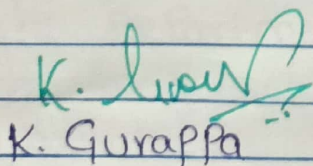 K.
K. Gurappa